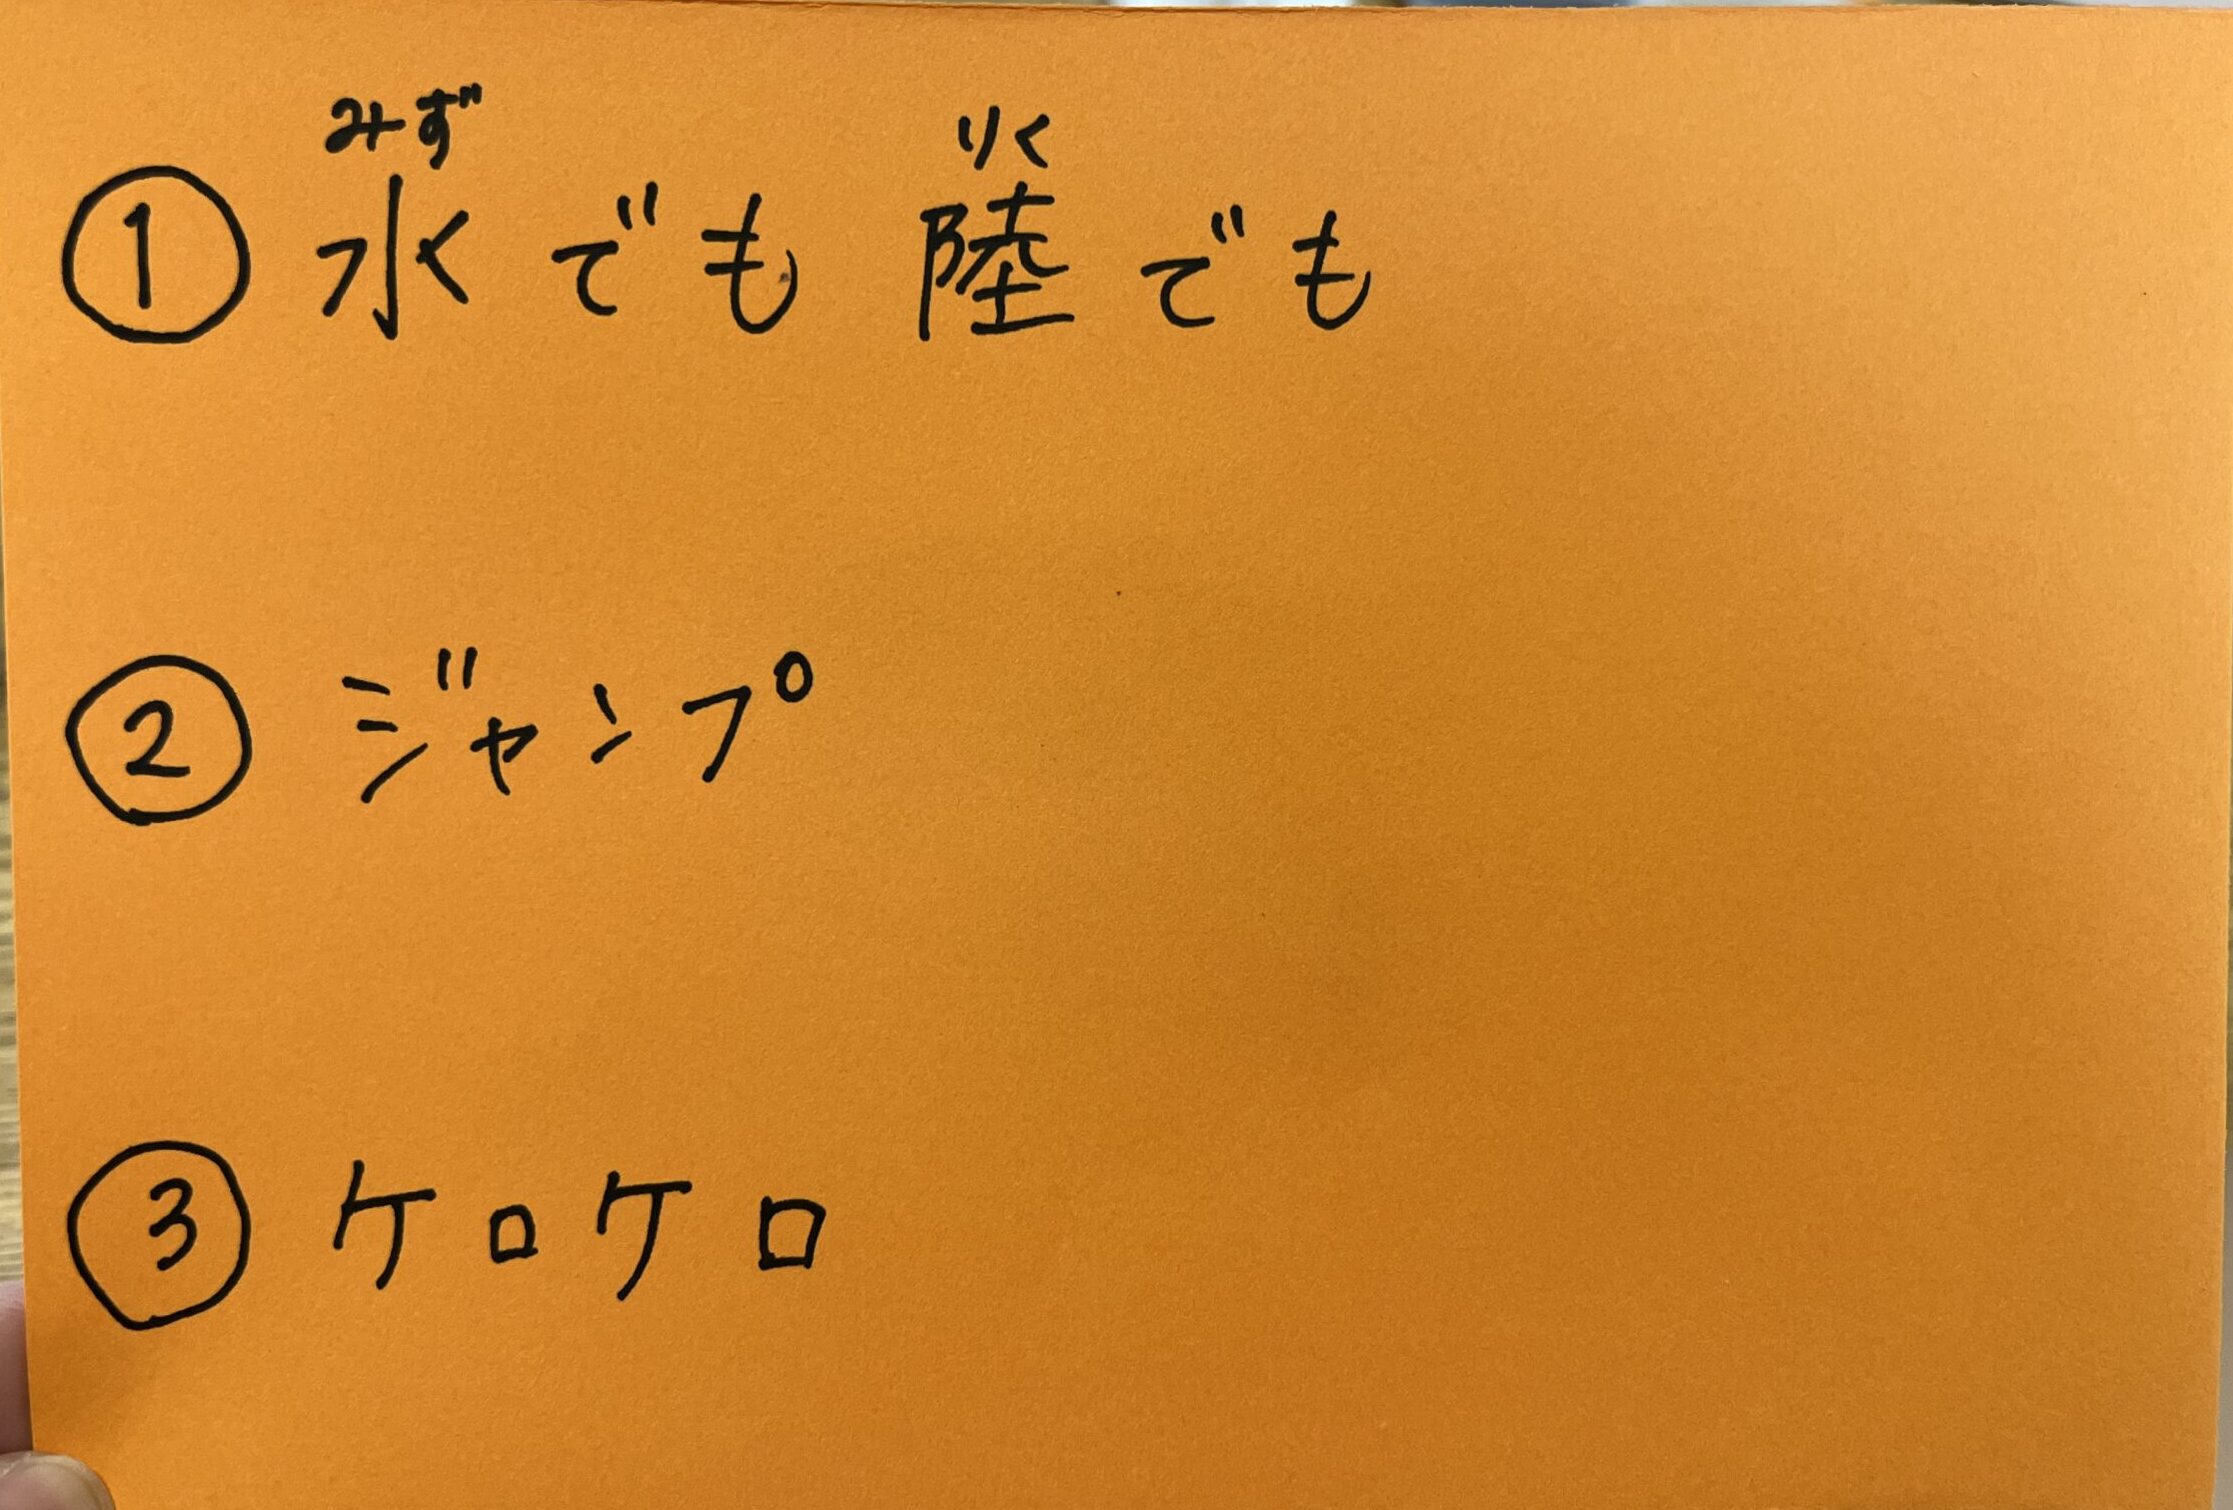 みず りく
① 水でも 陸でも
② ジャンプ
③ ケロケロ